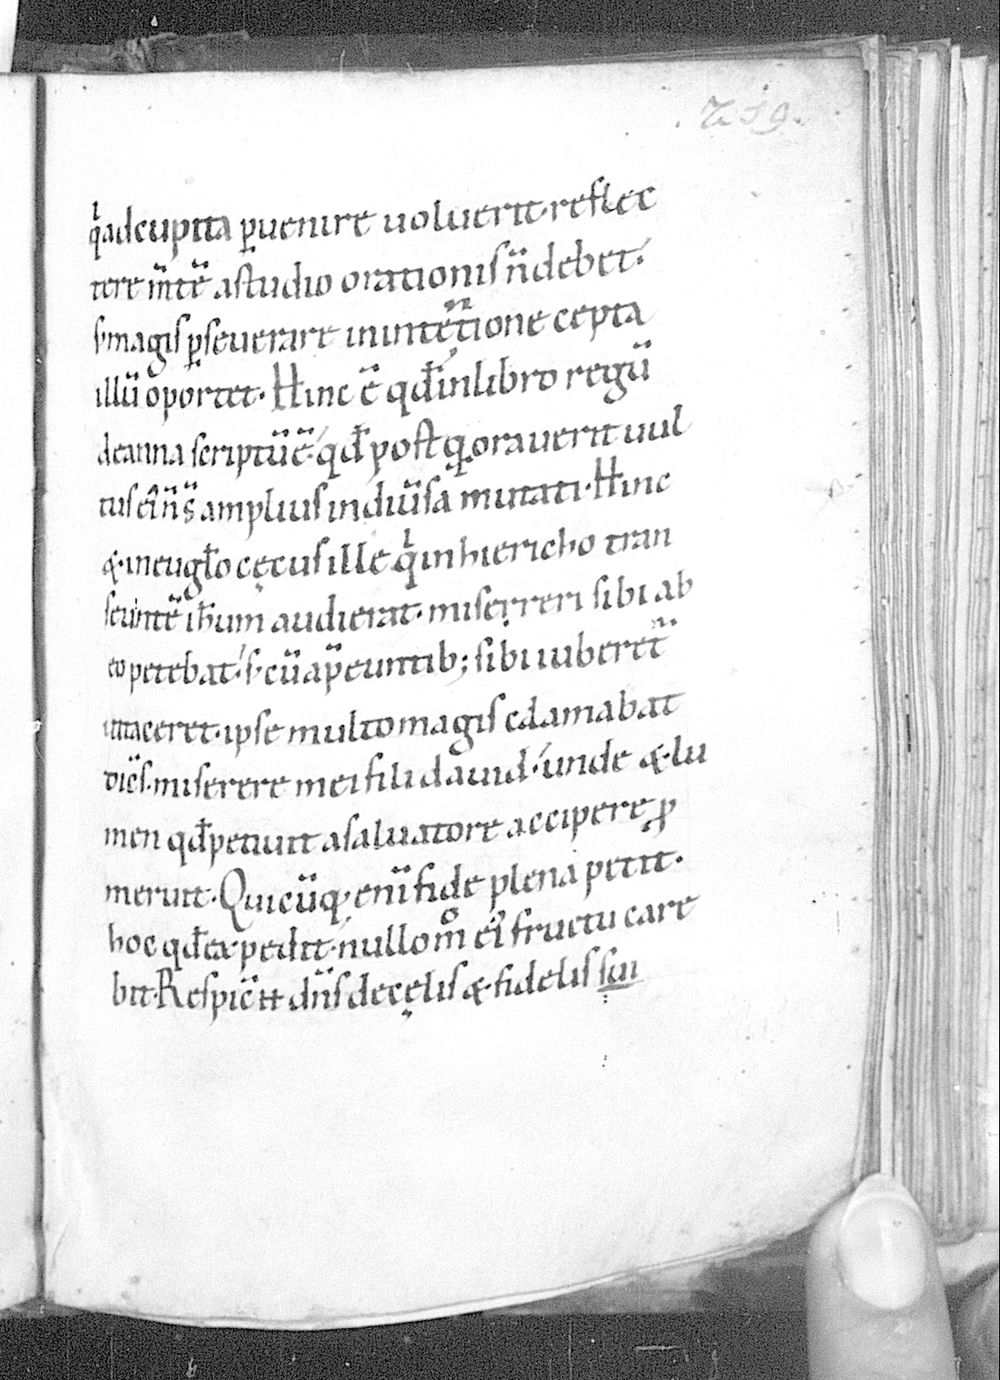 .219.
qͥ ad cupita ꝑuenire uoluerit· reflec
tere m̅te̅ a studio orationis n̅ debet·
s· magis ꝑseuerare in inte̅tione cepta
illu̅ oportet· Hinc e̅ qđ in libro regu̅
de anna scriptu̅ e̅· qđ postꝗ orauerit uul
tus ei n̅ s̅ amplius in diu̅sa mutati· Hinc
&· in eugło cęcus ille qͥ in hiericho tran
seunte̅ ih̅um audierat· miserreri sibi ab
eo petebat· s· cu̅ a p̅euntib; sibi iuberet̅
ut taceret· ipse multo magis clamabat
dice̅s· miserere mei fili dauid· unde &· lu
men qđ petiuit a saluatore accipere ꝓ
meruit· Quicu̅q; eni̅ fide plena petit·
hoc qđ expedit· nullom̊ ei fructu care
bit· Respice̅ it dn̅s de cęlis &· fidelis sui